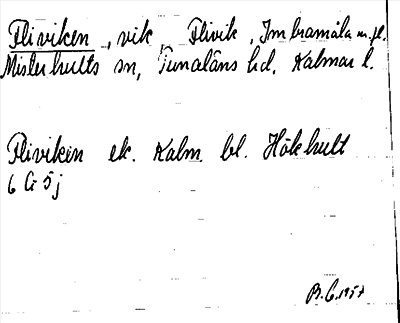 Fliviken, vik, Flivik, Imbramåla m.fl.
Misterhults sn, Tunaläns hd, Kalmar l.
Fliviken ek. Kalm. bl. Hökhult
6 G 5 j
B.G. 1957